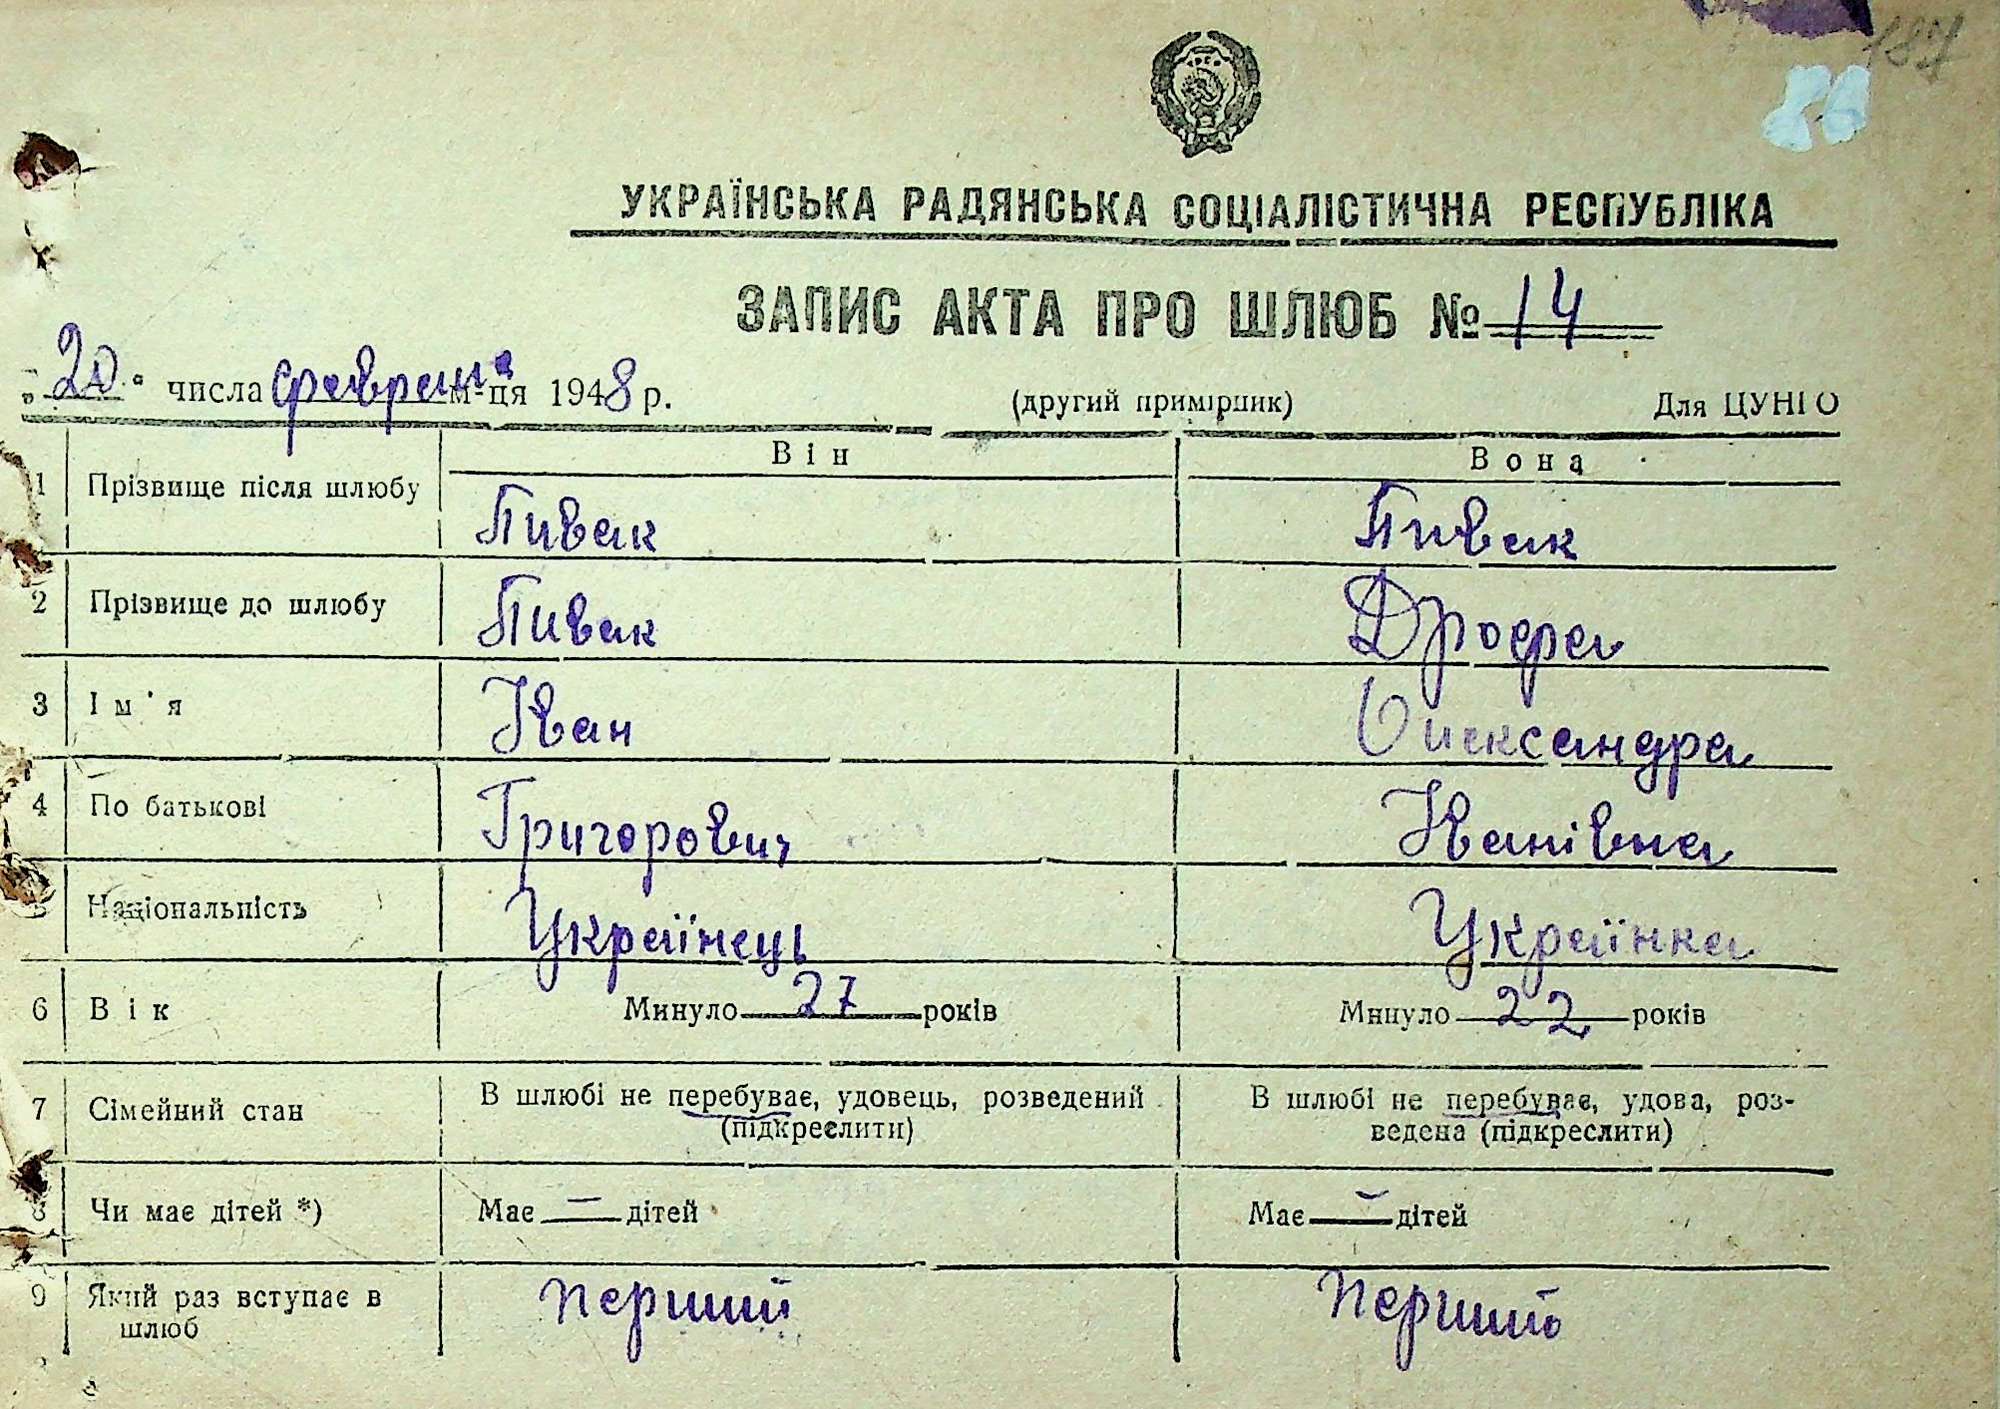 187
УКРАЇНСЬКА РАДЯНСЬКА СОЦІАЛІСТИЧНА РЕСПУБЛІКА
ЗАПИС АКТА ПРО ШЛЮБ № 14
„20“ числа февраля м-ця 1948 р. (другий примірник) Для ЦУНГО
Він Вона
1 Прізвище після шлюбу Пивак Пивак
2 Прізвище до шлюбу Пивак Дрофа
3 Ім'я Іван Олександра
4 По батькові Григорович Іванівна
5 Національність Українець Українка
6 Вік Минуло 27 років Минуло 22 років
7 Сімейний стан В шлюбі не перебуває, удовець, розведений В шлюбі не перебуває, удова, роз-
(підкреслити) ведена (підкреслити)
8 Чи має дітей *) Має — дітей Має — дітей
9 Який раз вступає в шлюб перший перший